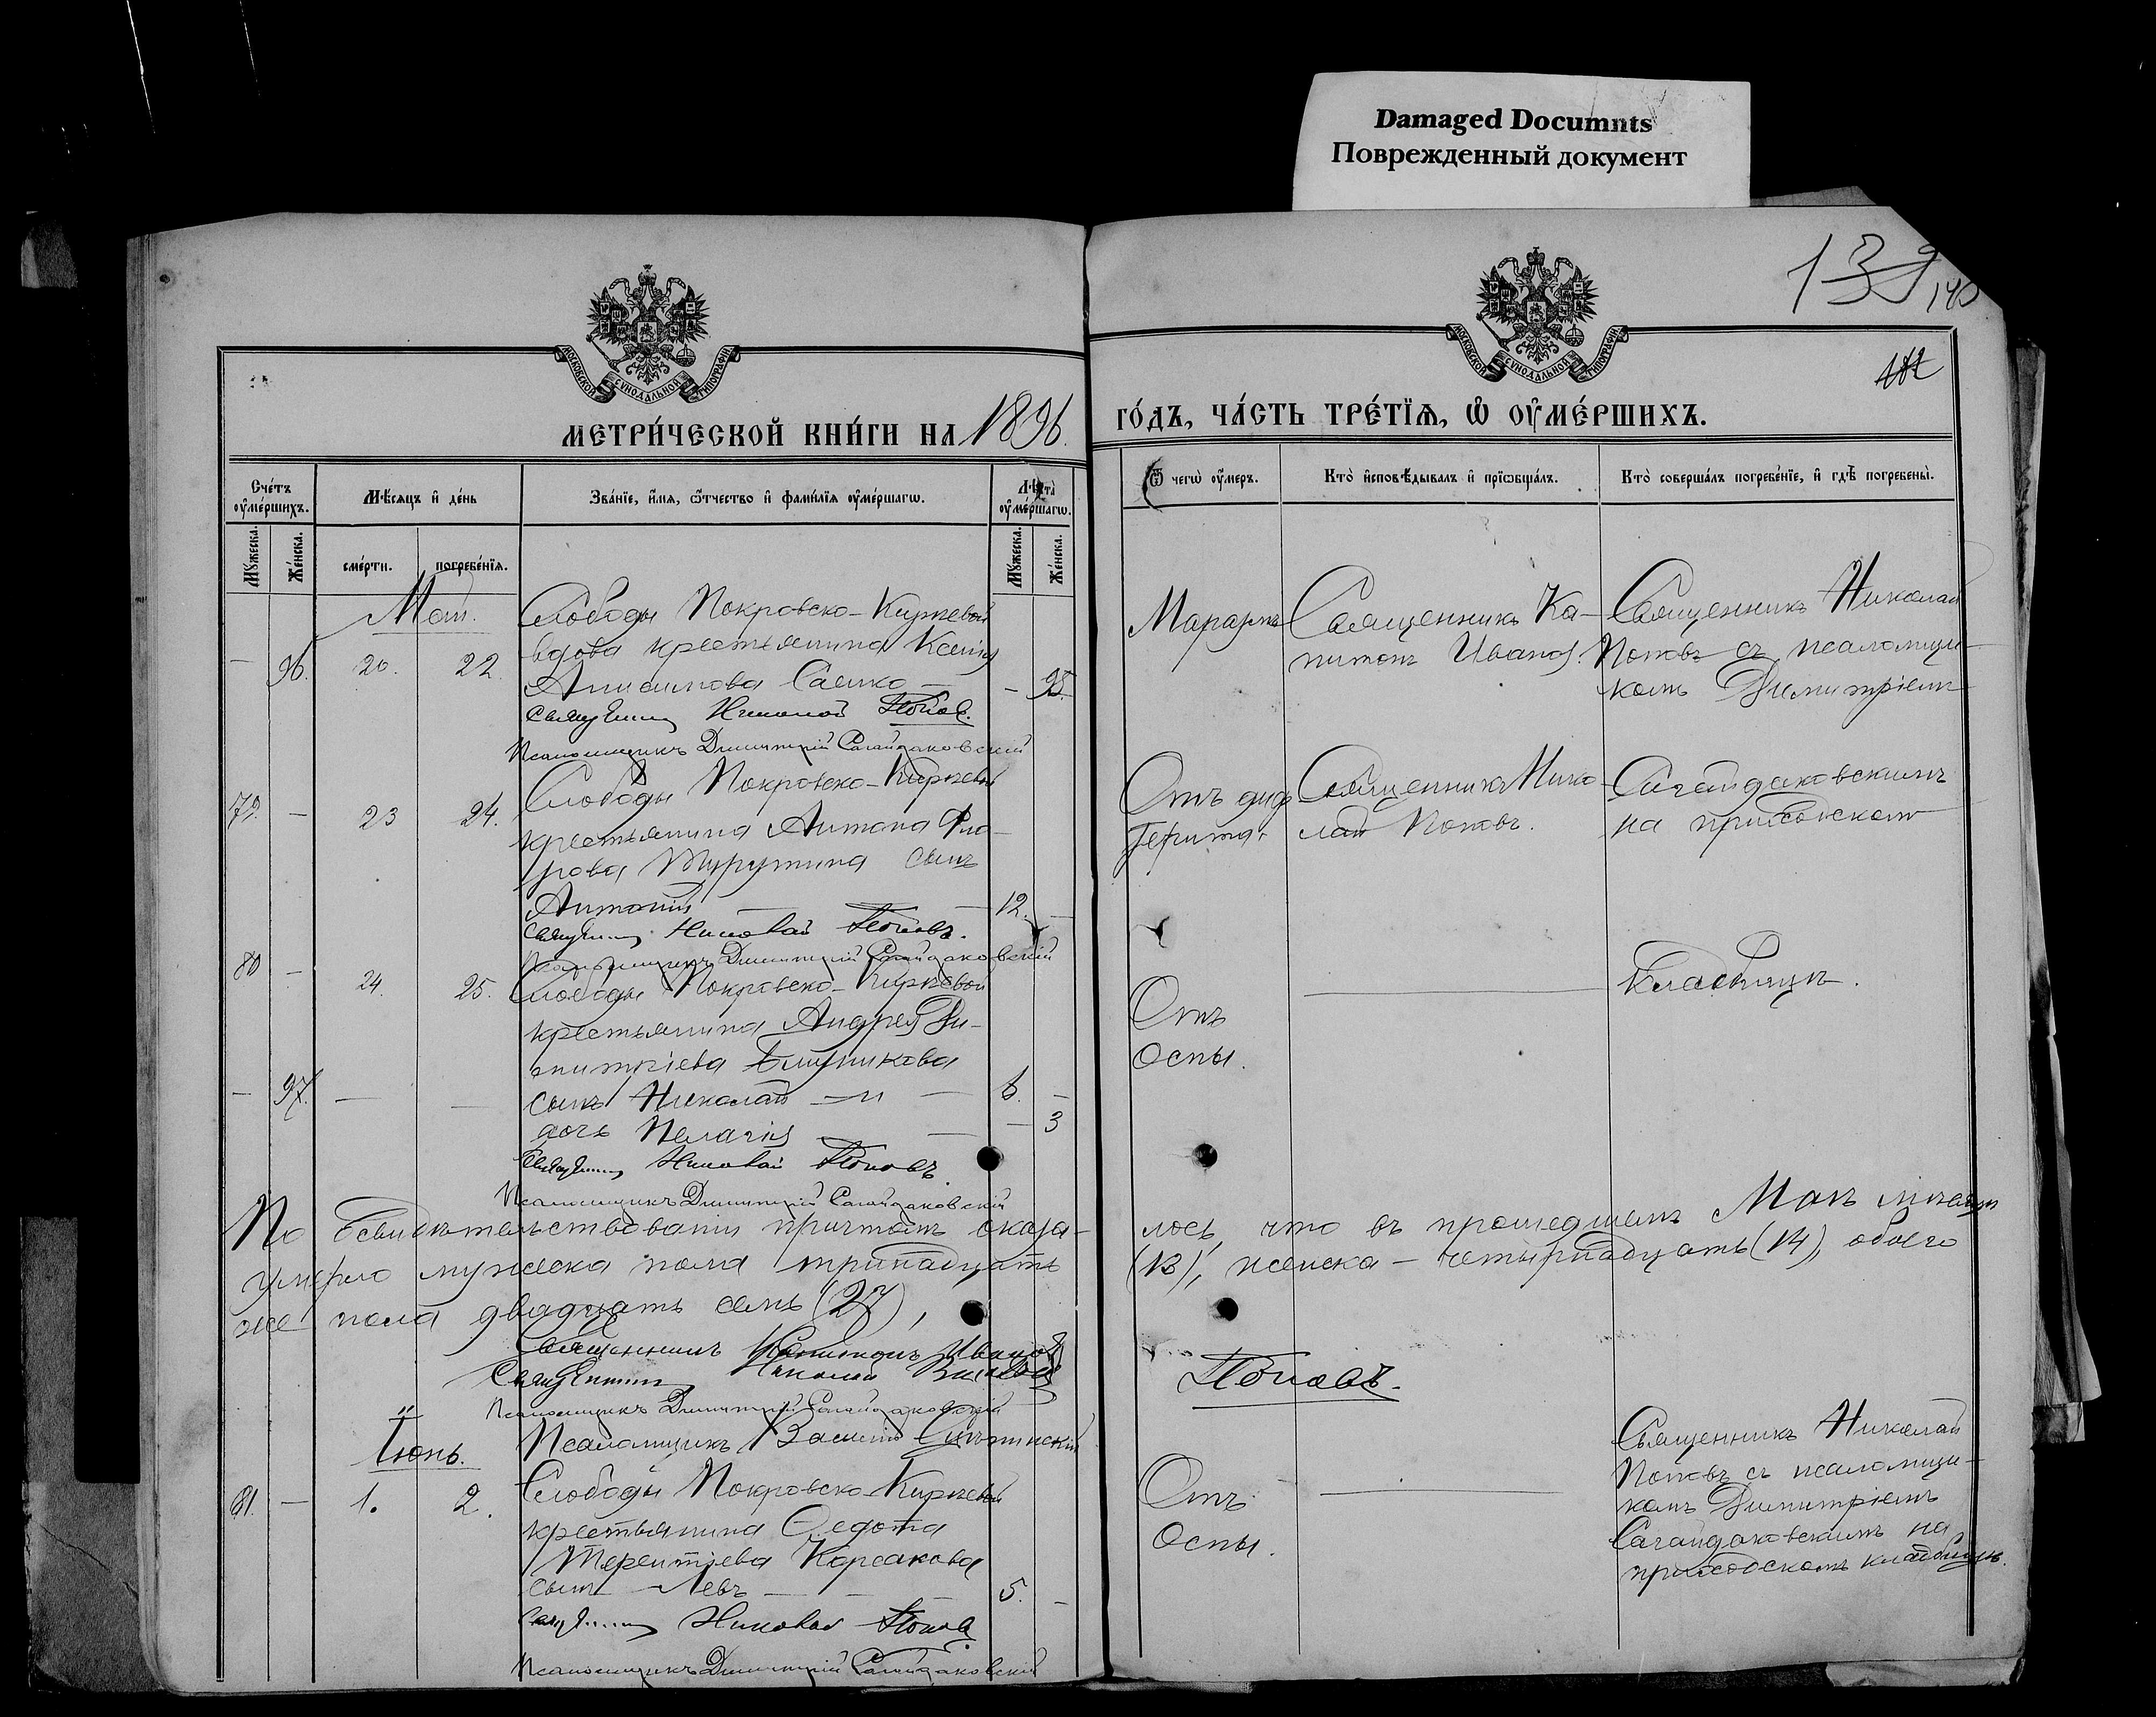 Damaged Documnts
Поврежденный документ
139
140
МОСКОВСКОЙ СУНОДАЛЬНОЙ ТИПОГРАФІИ
МОСКОВСКОЙ СУНОДАЛЬНОЙ ТИПОГРАФІИ
МЕТРИ́ЧЕСКОЙ КНИ́ГИ НА 1896.
ГО́ДЪ, ЧА́СТЬ ТРЕ́ТЇѦ, Ѡ҆ ОУ҆МЕ́РШИХЪ.
Сче́тъ оу҆ме́ршихъ.
Мѣ́сѧцъ и҆ де́нь
Зва́нїе, и҆́мѧ, ѻ҆́тчество и҆ фами́лїѧ оу҆ме́ршагѡ.
Лѣ́та оу҆ме́ршагѡ.
Ѿ чегѡ̀ оу҆́меръ.
Кто̀ и҆сповѣ́дывалъ и҆ прїѡбща́лъ.
Кто̀ соверша́лъ погребе́нїе, и҆ гдѣ̀ погребены̀.
Мꙋ́жеска.
Же́нска.
сме́рти.
погребе́нїѧ.
Мꙋ́жеска.
Же́нска.
Май.
Слободы Покровско-Киреевой
— 96. 20. 22. вдова крестьянина Ксенія
Анисимова Сасико — — 95.
Священникъ Николай Поповъ.
Псаломщикъ Димитрій Сагайдаковскій
Маразмъ
Священникъ Ка-
питонъ Ивановъ.
Священникъ Николай
Поповъ съ псаломщи-
комъ Димитріемъ
Слободы Покровско-Киреевой
79. — 23 24.
крестьянина Антона Фло-
рова Турутина сынъ
Антоній — 12. —
Священникъ Николай Поповъ.
Псаломщикъ Димитрій Сагайдаковскій
Отъ диф-
терита
Священникъ Нико-
лай Поповъ.
Сагайдаковскимъ
на приходскомъ
80 — 24. 25. Слободы Покровско-Киреевой
крестьянина Андрея Ди-
митріева
— 97. — — сынъ Николай — и — 6. —
дочь Пелагія — — 3
Священникъ Николай Поповъ.
Псаломщикъ Димитрій Сагайдаковскій
Отъ
Оспы.
кладбищѣ.
По освидѣтельствованіи причтомъ оказа-
лось, что въ прошедшемъ Маѣ мѣсяцѣ
умерло мужеска пола тринадцать
(13), женска — четырнадцать (14), обоего
же пола двадцать семь (27),
Священникъ Капитонъ Ивановъ
Священникъ Николай Васильевъ
Поповъ.
Псаломщикъ Димитрій Сагайдаковскій
Псаломщикъ Василій
Іюнь.
81. — 1. 2. Слободы Покровско-Киреевой
крестьянина Ѳедота
Терентіева Корсакова
сынъ — Левъ — — 5. —
Священникъ Николай Поповъ.
Псаломщикъ Димитрій Сагайдаковскій
Отъ
Оспы.
Священникъ Николай
Поповъ съ псаломщи-
комъ Димитріемъ
Сагайдаковскимъ на
приходскомъ кладбищѣ.